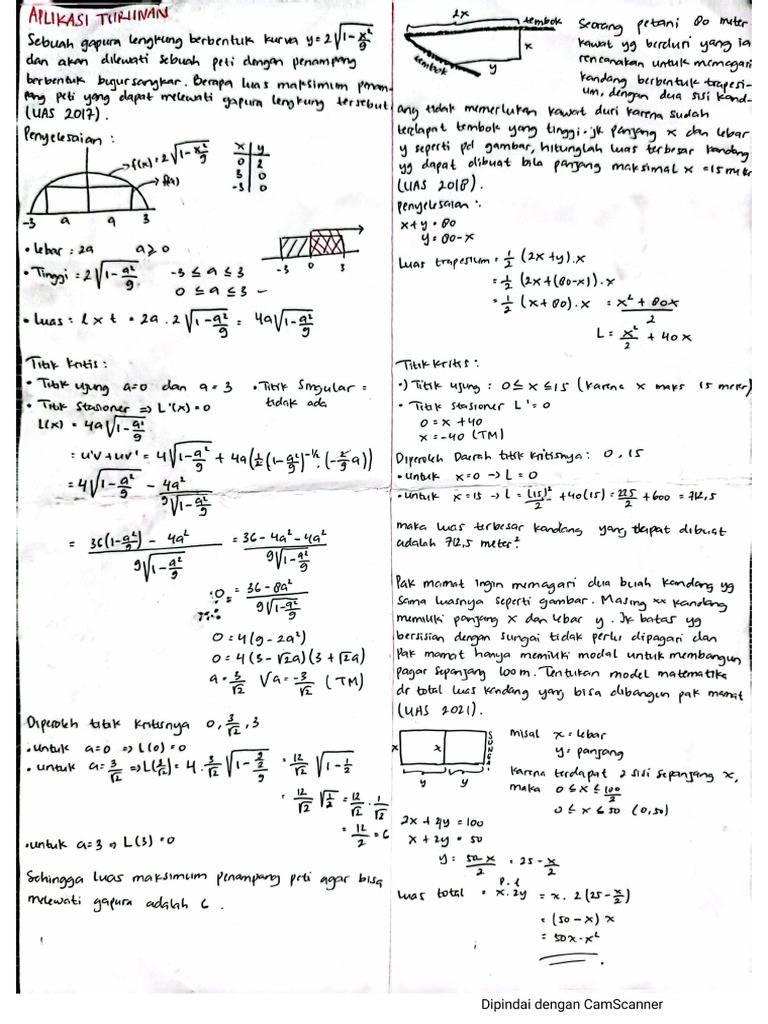 APLIKASI TURUNAN
Sebuah gapura lengkung berbentuk kurva y = 2√(1-x²/9)
dan akan dilewati sebuah peti dengan penampang
berbentuk bujur sangkar. Berapa luas maksimum penam-
pang peti yang dapat melewati gapura lengkung tersebut
(UAS 2017).
Penyelesaian :
f(x) = 2√(1-x²/9)
f(a)
x y
0 2
3 0
-3 0
-3 a a 3
• Lebar : 2a a ≥ 0
-3 0 3
• Tinggi = 2√(1-a²/9) -3 ≤ a ≤ 3
0 ≤ a ≤ 3
• Luas = l x t = 2a . 2√(1-a²/9) = 4a√(1-a²/9)
Titik kritis :
• Titik ujung a=0 dan a=3 • Titik Singular = tidak ada
• Titik Stasioner => L'(x) = 0
L(x) = 4a√(1-a²/9)
= u'v + uv' = 4√(1-a²/9) + 4a(½(1-a²/9)^(-½) . (-2/9 a))
= 4√(1-a²/9) - 4a²/(9√(1-a²/9))
= (36(1-a²/9) - 4a²)/(9√(1-a²/9)) = (36 - 4a² - 4a²)/(9√(1-a²/9))
0 = (36 - 8a²)/(9√(1-a²/9))
0 = 4(9 - 2a²)
0 = 4(3 - √2a)(3 + √2a)
a = 3/√2 V a = -3/√2 (TM)
Diperoleh titik kritisnya 0, 3/√2, 3
• untuk a=0 => L(0) = 0
• untuk a = 3/√2 => L(3/√2) = 4 . 3/√2 √(1 - (9/2)/9) = 12/√2 √(1-½)
= 12/√2 √½ = 12/√2 . 1/√2
= 12/2 = 6
• untuk a=3 => L(3) = 0
Sehingga luas maksimum penampang peti agar bisa
melewati gapura adalah 6.
2x tembok
x
y
tembok
Seorang petani 80 meter
kawat yg berduri yang ia
rencanakan untuk memagari
kandang berbentuk trapesi-
um, dengan dua sisi kand-
ang tidak memerlukan kawat duri karena sudah
terdapat tembok yang tinggi. jk panjang x dan lebar
y seperti pd gambar, hitunglah luas terbesar kandang
yg dapat dibuat bila panjang maksimal x = 15 meter
(UAS 2018).
Penyelesaian :
x + y = 80
y = 80 - x
Luas trapesium = ½ (2x + y) . x
= ½ (2x + (80-x)) . x
= ½ (x + 80) . x = (x² + 80x)/2
L = x²/2 + 40x
Titik kritis :
•) Titik ujung : 0 ≤ x ≤ 15 (karena x maks 15 meter)
• Titik stasioner L' = 0
0 = x + 40
x = -40 (TM)
Diperoleh Daerah titik kritisnya : 0, 15
• untuk x=0 -> L = 0
• untuk x=15 -> L = (15)²/2 + 40(15) = 225/2 + 600 = 712,5
maka luas terbesar kandang yang dapat dibuat
adalah 712,5 meter²
Pak mamat ingin memagari dua buah kandang yg
sama luasnya seperti gambar. Masing ×× kandang
memiliki panjang x dan lebar y. Jk batas yg
bersisian dengan sungai tidak perlu dipagari dan
Pak mamat hanya memiliki modal untuk membangun
pagar sepanjang 100 m. Tentukan model matematika
dr total luas kandang yang bisa dibangun pak mamat
(UAS 2021).
x x SUNGAI
y y
misal x = lebar
y = panjang
karena terdapat 2 sisi sepanjang x,
maka 0 ≤ x ≤ 100/2
0 ≤ x ≤ 50 (0,50)
2x + 4y = 100
x + 2y = 50
y = (50-x)/2 = 25 - x/2
p.l
Luas total = x . 2y = x . 2(25 - x/2)
= (50 - x) x
= 50x - x²
Dipindai dengan CamScanner